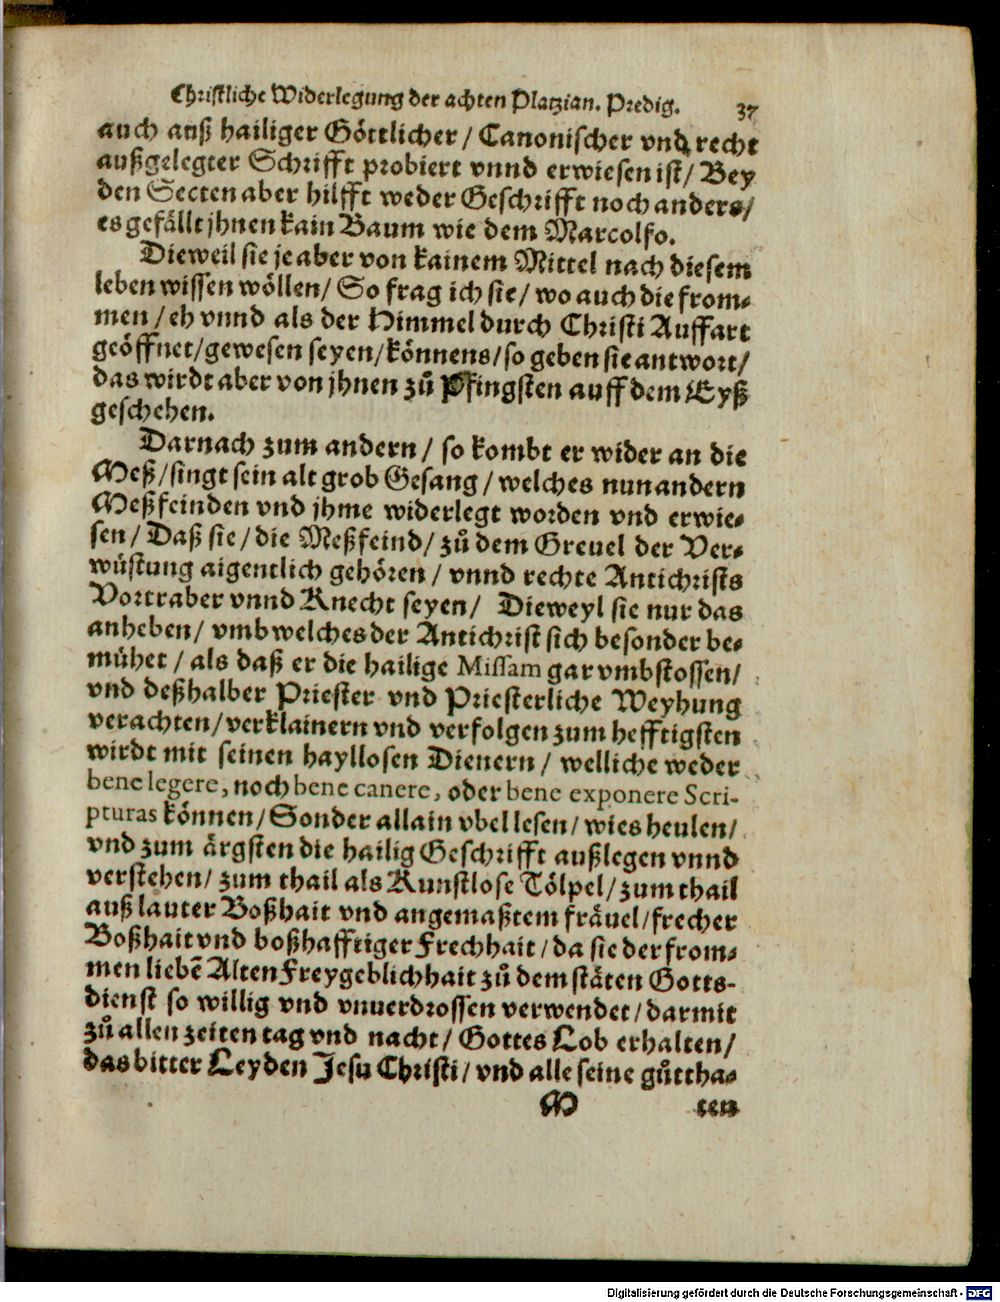 Christliche Widerlegung der achten Platzian. Predig. 37
auch auß hailiger Göttlicher / Canonischer vnd recht
außgelegter Schrifft probiert vnnd erwiesen ist / Bey
den Secten aber hilfft weder Geschrifft noch anders /
es gefällt jhnen kain Baum wie dem Marcolfo.
Dieweil sie je aber von kainem Mittel nach diesem
leben wissen wöllen / So frag ich sie / wo auch die from-
men / eh vnnd als der Himmel durch Christi Auffart
geöffnet / gewesen seyen / könnens / so geben sie antwort /
das wirdt aber von jhnen zů Pfingsten auff dem Eyß
geschehen.
Darnach zum andern / so kombt er wider an die
Meß / singt sein alt grob Gesang / welches nun andern
Meßfeinden vnd jhme widerlegt worden vnd erwie-
sen / Daß sie / die Meßfeind / zů dem Greuel der Ver-
wüstung aigentlich gehören / vnnd rechte Antichrists
Vortraber vnnd Knecht seyen / Dieweyl sie nur das
anheben / vmb welches der Antichrist sich besonder be-
mühet / als daß er die hailige Missam gar vmbstossen /
vnd deßhalber Priester vnd Priesterliche Weyhung
verachten / verklainern vnd verfolgen zum hefftigsten
wirdt mit seinen hayllosen Dienern / welliche weder
bene legere, noch bene canere, oder bene exponere Scri-
pturas können / Sonder allain vbel lesen / wies heulen /
vnd zum ärgsten die hailig Geschrifft außlegen vnnd
verstehen / zum thail als Kunstlose Tölpel / zum thail
auß lauter Boßhait vnd angemaßtem fräuel / frecher
Boßhait vnd boßhafftiger Frechhait / da sie der from-
men liebē Alten Freygeblichhait zů dem stäten Gotts-
dienst so willig vnd vnuerdrossen verwendet / darmit
zů allen zeiten tag vnd nacht / Gottes Lob erhalten /
das bitter Leyden Jesu Christi / vnd alle seine gůttha-
M ten
Digitalisierung gefördert durch die Deutsche Forschungsgemeinschaft - DFG